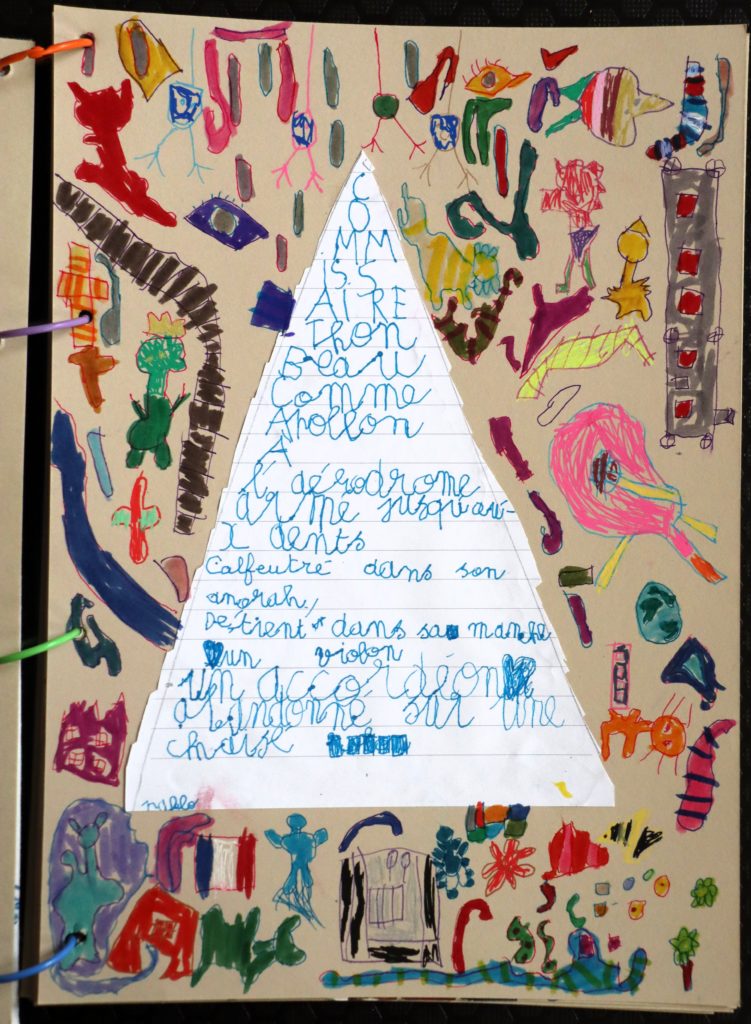 C
O
MM
ISS
AIRE
Thon
Beau
Comme
Apollon
A
l'aérodrome
armé jusqu'au-
x dents
Calfeutré dans son
anorak,
Destient dans sa manche
un violon
Un accordéon
abandonné sur une
chaise
Pablo